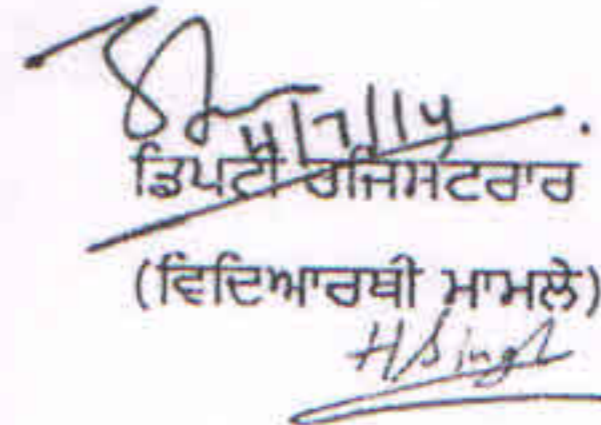 4/7/14
ਡਿਪਟੀ ਰਜਿਸਟਰਾਰ
(ਵਿਦਿਆਰਥੀ ਮਾਮਲੇ)
H Singh